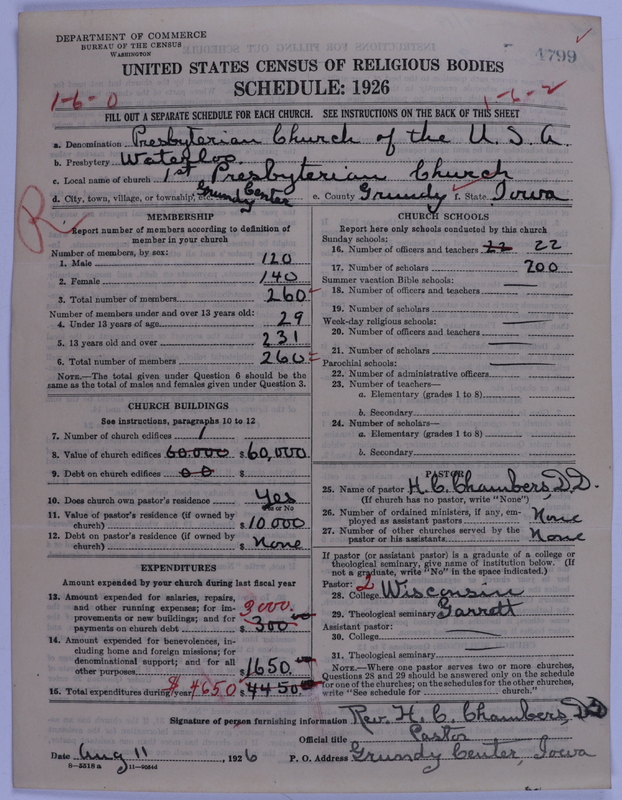 DEPARTMENT OF COMMERCE
BUREAU OF THE CENSUS
WASHINGTON
4799
UNITED STATES CENSUS OF RELIGIOUS BODIES
SCHEDULE: 1926
1-6-0
1-6-2
FILL OUT A SEPARATE SCHEDULE FOR EACH CHURCH. SEE INSTRUCTIONS ON THE BACK OF THIS SHEET
a. Denomination Presbyterian Church of the U. S. A.
b. Presbytery Waterloo.
c. Local name of church 1st Presbyterian Church
d. City, town, village, or township, etc. Grundy Center e. County Grundy f. State Iowa
R
MEMBERSHIP
Report number of members according to definition of
member in your church
Number of members, by sex:
1. Male 120
2. Female 140
3. Total number of members 260
Number of members under and over 13 years old:
4. Under 13 years of age 29
5. 13 years old and over 231
6. Total number of members 260
NOTE.—The total given under Question 6 should be
same as the total of males and females given under Question 3.
CHURCH BUILDINGS
See instructions, paragraphs 10 to 12
7. Number of church edifices 1
8. Value of church edifices 60.000 $ 60,000
9. Debt on church edifices 00 $
10. Does church own pastor's residence Yes
Yes or No
11. Value of pastor's residence (if owned by
church) $ 10 000
12. Debt on pastor's residence (if owned by
church) $ None
EXPENDITURES
Amount expended by your church during last fiscal year
13. Amount expended for salaries, repairs,
and other running expenses; for im-
provements or new buildings; and for
payments on church debt $ 300 00
3000.
14. Amount expended for benevolences, in-
cluding home and foreign missions; for
denominational support; and for all
other purposes $ 1650.
15. Total expenditures during year $ 4650 $ 4450.
CHURCH SCHOOLS
Report here only schools conducted by this church
Sunday schools:
16. Number of officers and teachers 22 22
17. Number of scholars 200
Summer vacation Bible schools:
18. Number of officers and teachers
19. Number of scholars
Week-day religious schools:
20. Number of officers and teachers
21. Number of scholars
Parochial schools:
22. Number of administrative officers
23. Number of teachers—
a. Elementary (grades 1 to 8)
b. Secondary
24. Number of scholars—
a. Elementary (grades 1 to 8)
b. Secondary
PASTOR
25. Name of pastor H. C. Chambers, D.D.
(If church has no pastor, write "None")
26. Number of ordained ministers, if any, em-
ployed as assistant pastors None
27. Number of other churches served by the
pastor or his assistants None
If pastor (or assistant pastor) is a graduate of a college or
theological seminary, give name of institution below. (If
not a graduate, write "No" in the space indicated.)
Pastor: 2
28. College Wisconsin
29. Theological seminary Garrett
Assistant pastor:
30. College
31. Theological seminary
NOTE.—Where one pastor serves two or more churches,
Questions 28 and 29 should be answered only on the schedule
for one of the churches; on the schedules for the other churches,
write "See schedule for church."
Signature of person furnishing information Rev. H. C. Chambers, DD
Official title Pastor
Date Aug 11, 1926 P. O. Address Grundy Center, Iowa